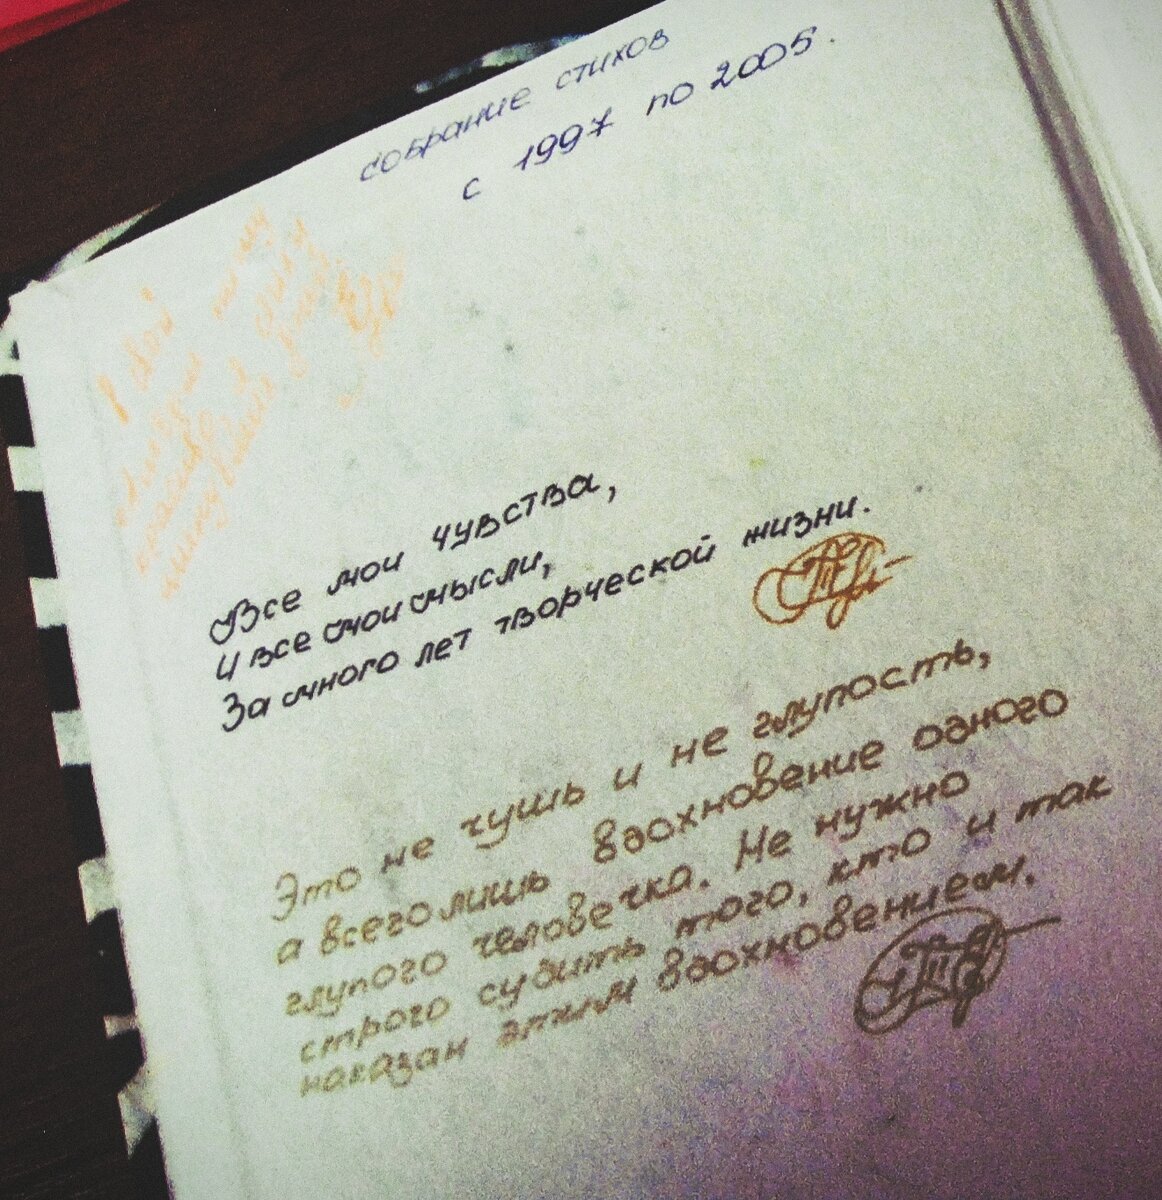 собрание стихов
с 1997 по 2005.
в свой
Все мои чувства,
И все мои мысли,
За много лет творческой жизни.
Это не чушь и не глупость,
а всего лишь вдохновение одного
глупого человечка. Не нужно
строго судить того, кто и так
наказан этим вдохновением.